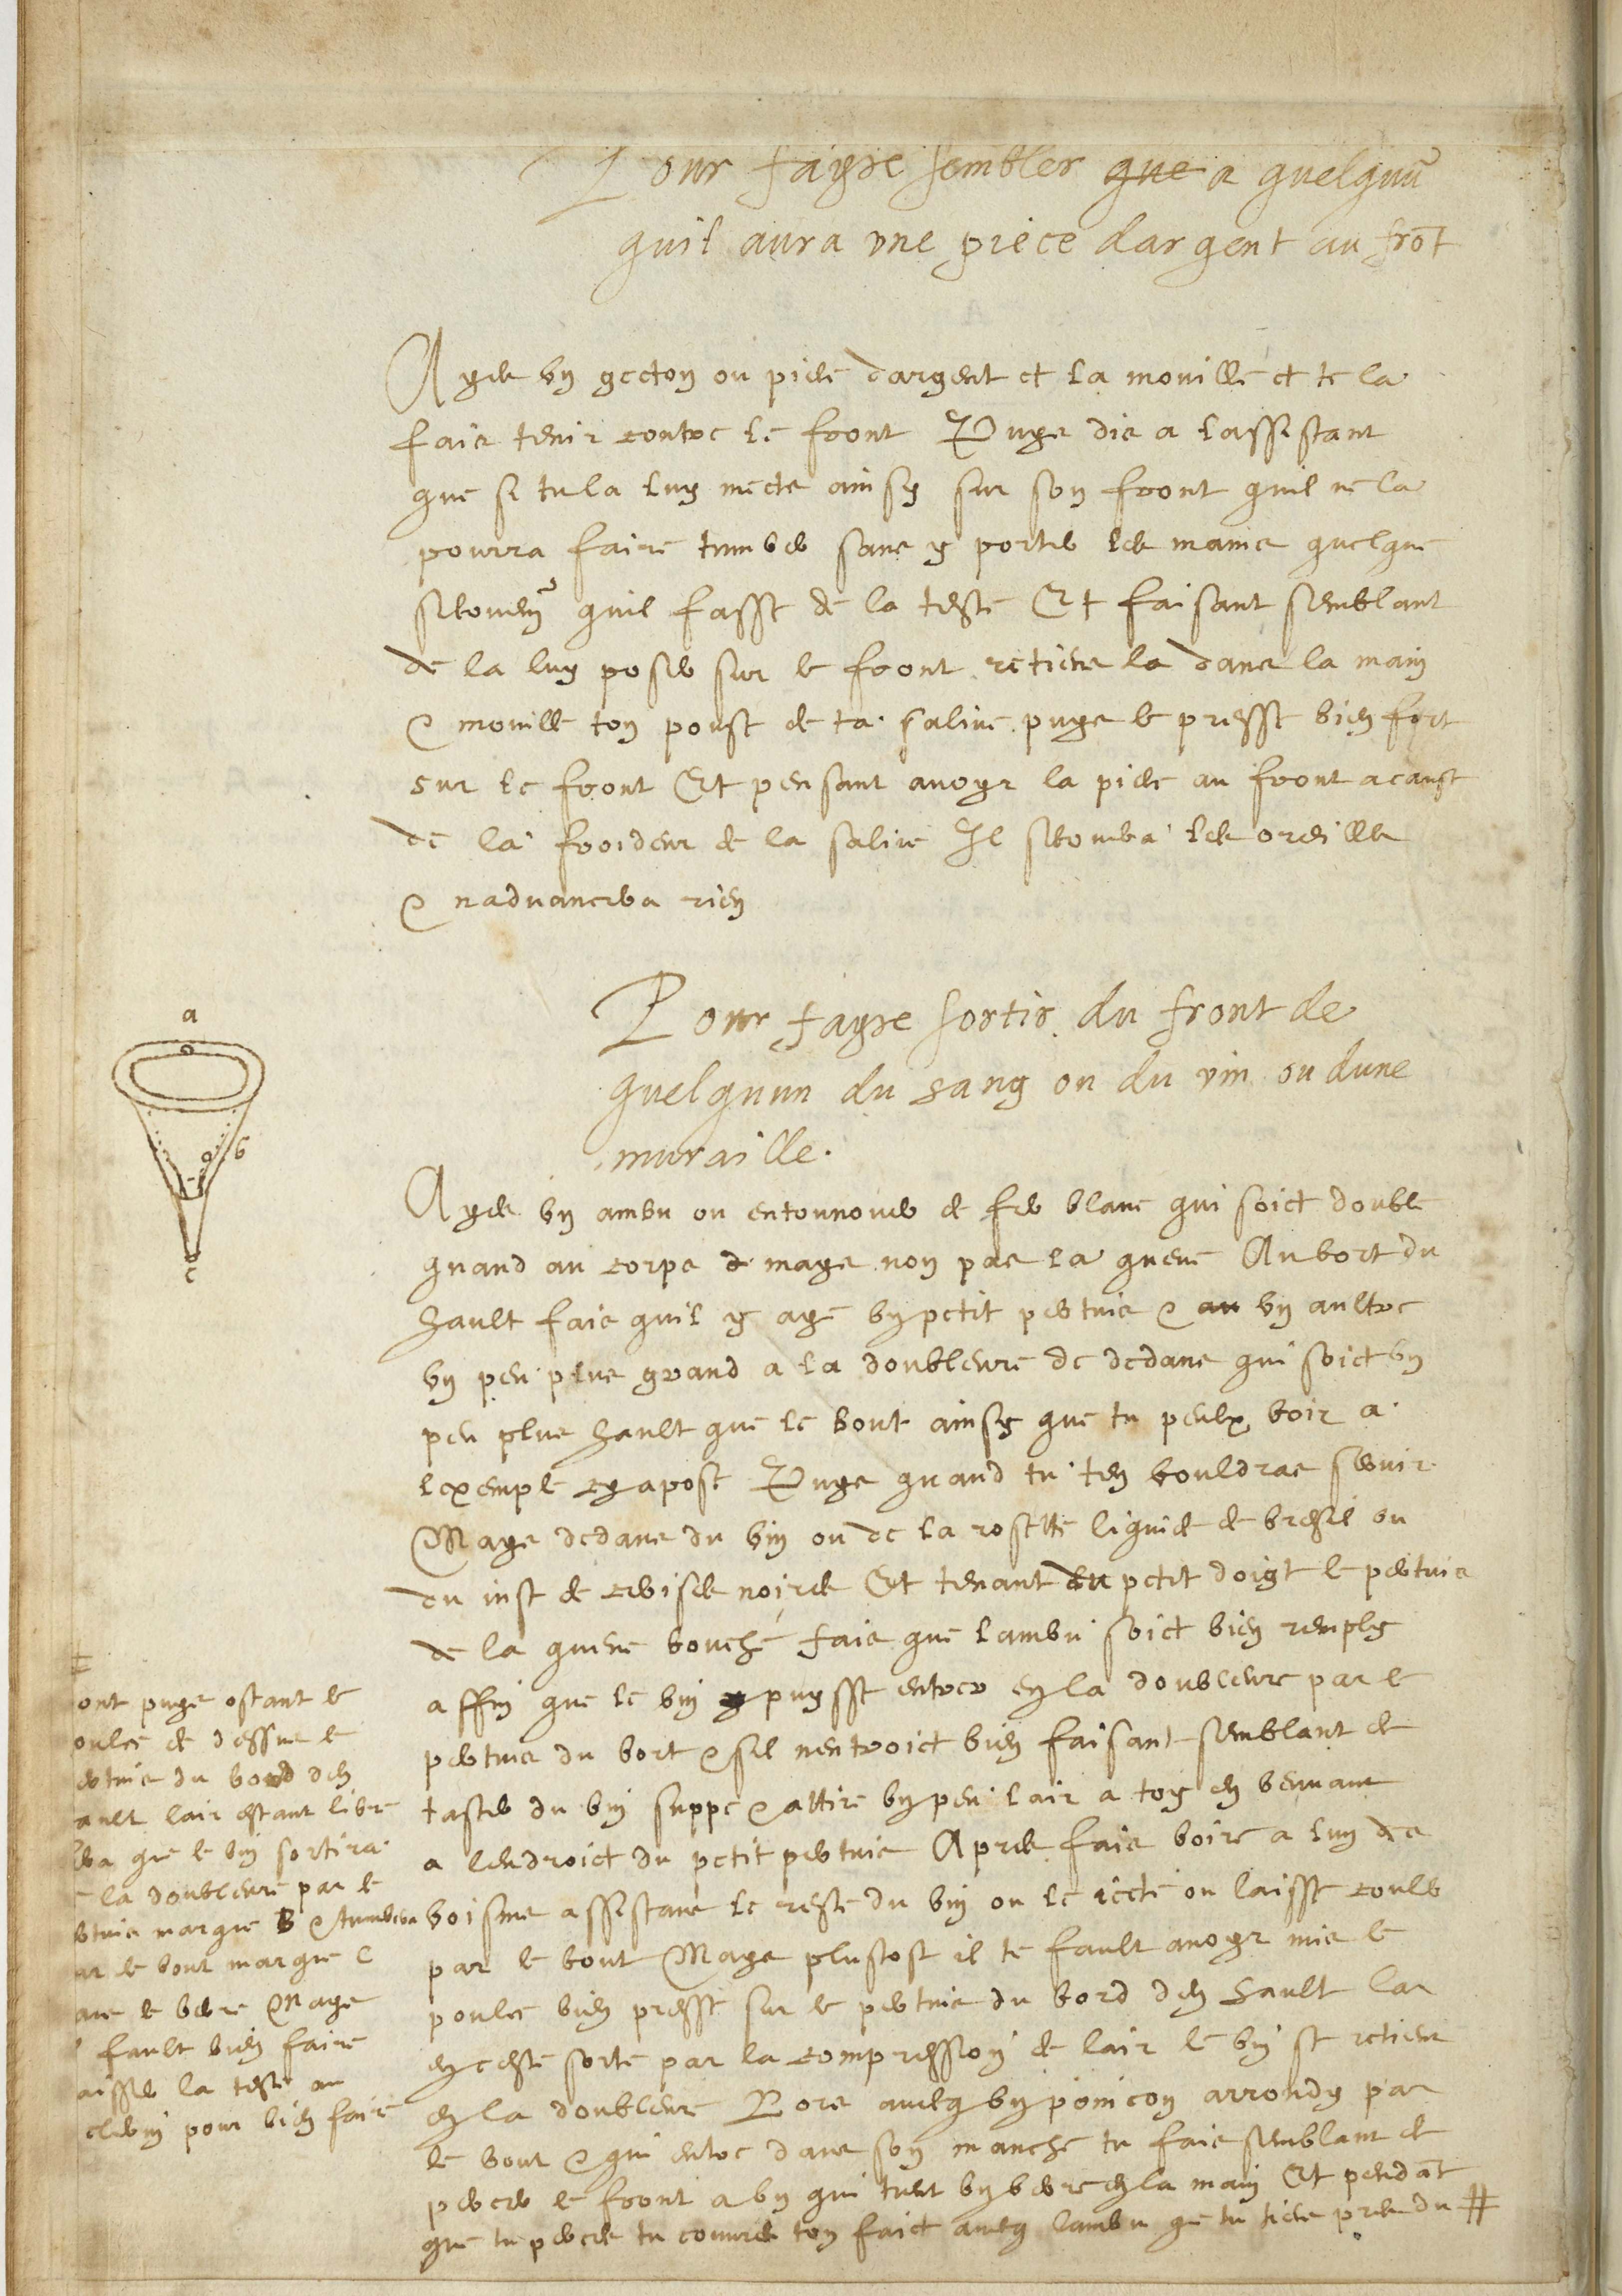 Pour fayre sembler que a quelquũ
quil aura vne piece dargent au frõt
Ayes un gecton ou piece dargent et la mouille et te la
fais tenir contre le front Puys dis a lassistant
que si tu la luy mects ainsy sur son front quil ne la
pourra faire tumber sans y porter les mains quelque
secouem{ent} quil fasse de la teste Et faisant semblant
de la luy poser sur le front retiens la dans la main
& mouille ton poulse de ta salive puys le presse bien fort
sur le front Et pensant avoyr la piece au front a cause
de la froideur de la salive Il secouera les oreilles
& nadvancera rien
Pour fayre sortir du front de
quelquun du sang ou du vin ou dune
muraille.
Ayes un ambu ou entonnouer de fer blanc qui soict double
quand au corps & mays non pas la queue Au bort du
hault fais quil y aye un petit pertuis & au un aultre
un peu plus grand a la doubleure de dedans qui soict un
peu plus hault que le bout ainsy que tu peulx voir a
lexemple cy apose Puys quand tu ten vouldras servir
Mays dedans du vin ou de la rosette liquide de bresil ou
du just de cerises noires Et tenant du petit doigt le pertuis
de la queue bouche fais que lambu soict bien remply
affin que le vin y puysse entrer en la doubleure par le
pertuis du bort & sil nentroict bien faisant semblant de
taster du vin suppe & attire un peu lair a toy en beuvant
a lendroict du petit pertuis Apres fais boire a lun des
voisins assistans le reste du vin ou le iecte ou laisse couler
par le bout Mays plustost il te fault avoyr mis le
poulce bien presse sur le pertuis du bord den hault Car
en ceste sorte par la compression de lair le vin se retient
en la doubleure Lors avecq un poincon arrondy par
le bout & qui entre dans son manche tu fais semblant de
percer le front a un qui tient un verre en la main Et pendãt
que tu perces tu couvres ton faict avecq lambu que tu tiens pres du #
a
b
c
#
ont puys ostant le
oulce de dessus le
ertuis du bord den
ault lair estant libre
era que le vin sortira
e la doubleure par le
rtuis marque B & tumbera
ar le bout marque C
ans le verre Mays
l fault bien faire
aisser la teste au
atient pour bien faire